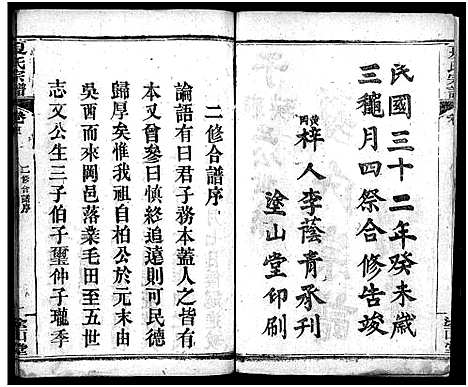 民國三十二年癸未歲
三穐月四祭合修告竣
黃岡
梓人李蔭青承刊
塗山堂印刷
二修合譜序
論語有曰君子務本蓋人之皆有
本又曾參曰慎終追遠則民德
歸厚矣惟我祖自柏公於元末由
吳西而來岡邑落業毛田至五世
志文公生三子伯子璽仲子瓏季
夏氏宗譜
二修合譜序
塗山堂